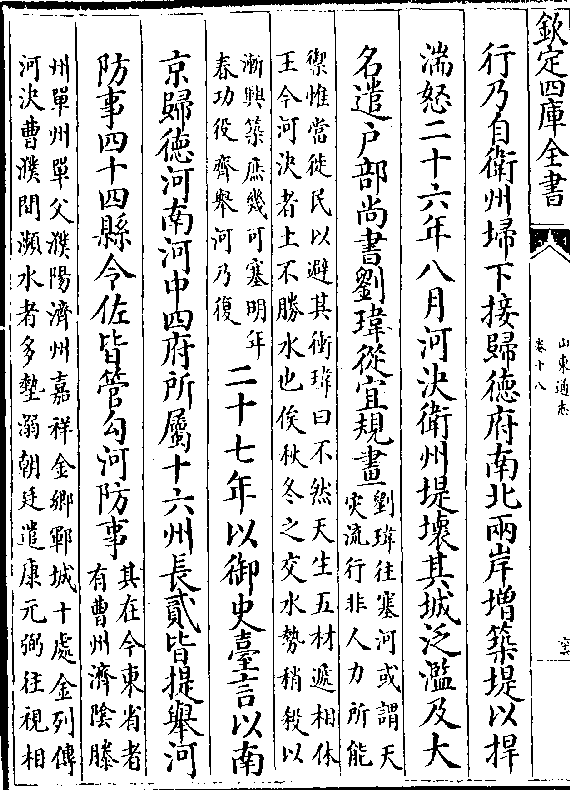 欽定四庫全書
山東通志
卷十八
行乃自衛州埽下接歸徳府南北兩岸増築堤以捍
湍怒二十六年八月河決衛州堤壊其城泛濫及大
名遣户部尚書劉瑋從宜規畫
劉瑋往塞河或謂天
災流行非人力所能
禦惟當徙民以避其衝瑋曰不然天生五材遞相休
王今河決者土不勝水也俟秋冬之交水勢稍殺以
漸興築庶幾可塞明年
春功役齊舉河乃復
二十七年以御史臺言以南
京歸徳河南河中四府所屬十六州長貳皆提舉河
防事四十四縣令佐皆管勾河防事
其在今東省者
有曹州濟陰滕
州單州單父濮陽濟州嘉祥金鄉鄆城十處金列傳
河決曹濮間瀕水者多墊溺朝廷遣康元弼往視相